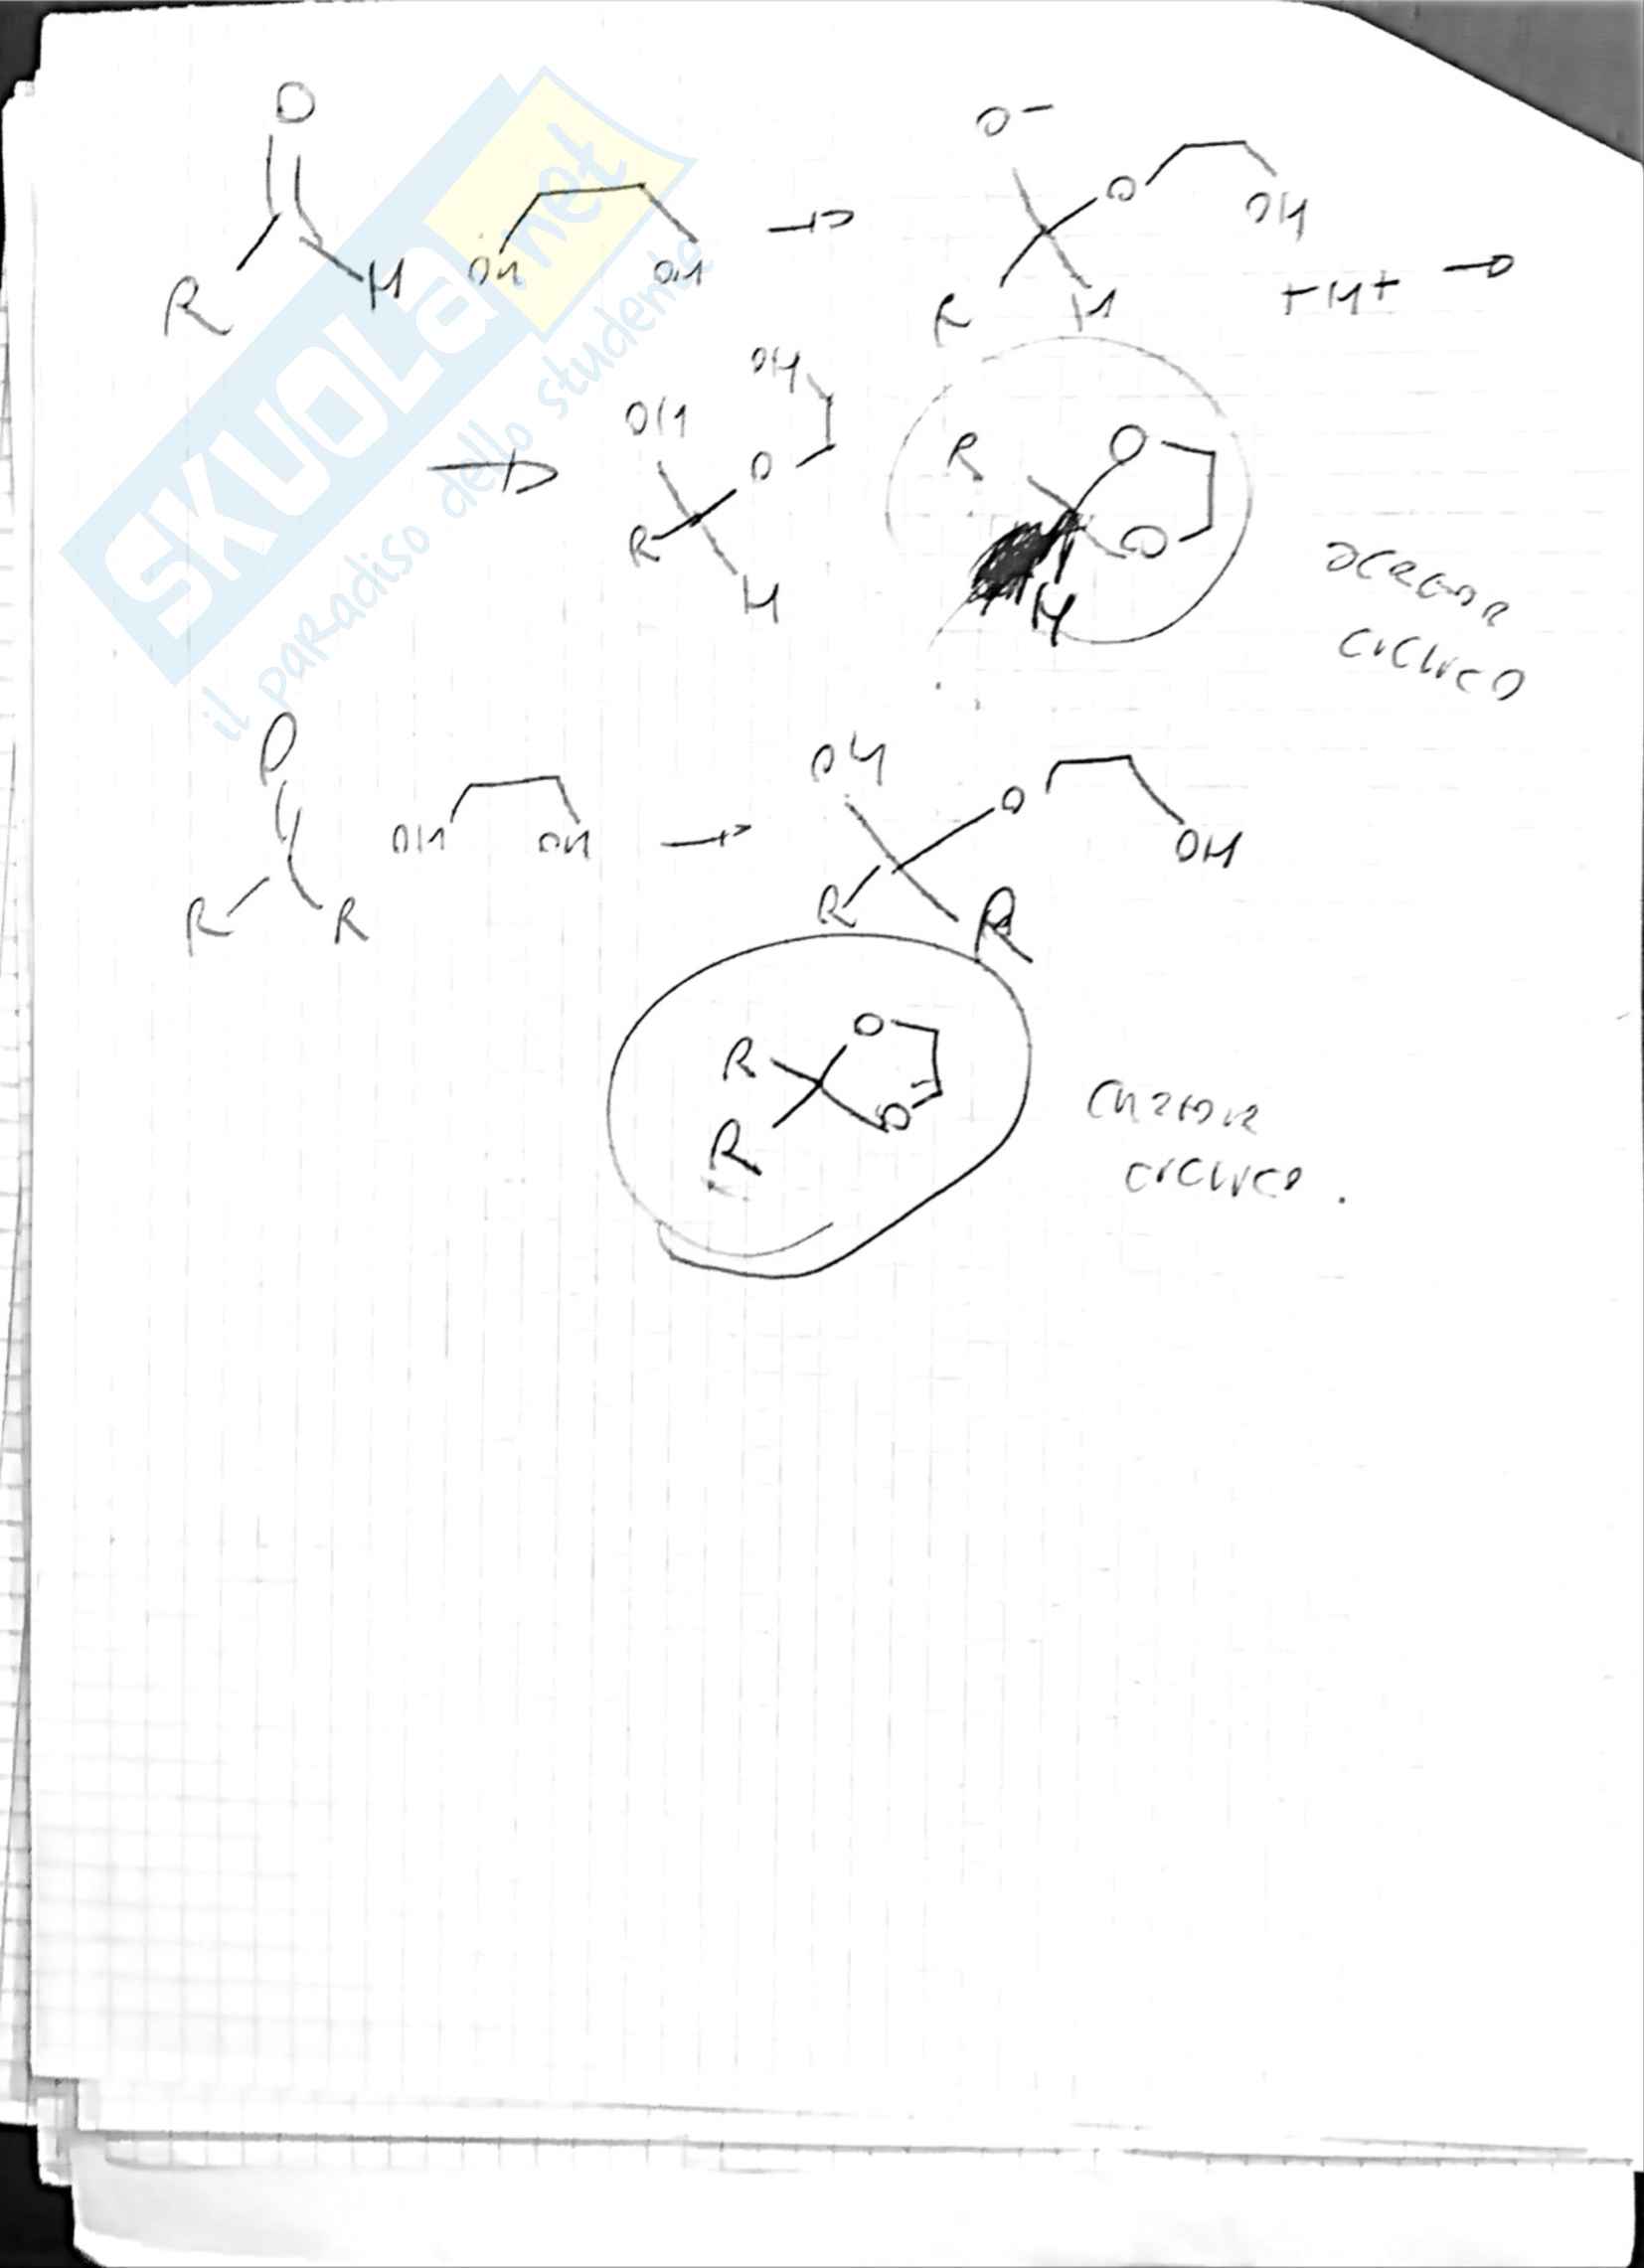 O
R H OH OH →
O-
O OH
R H + H+ →
→ OH OH
O
R H
R O
O
H
acetale
ciclico
O
R R OH OH →
OH O OH
R R
R O
R O
chetale
ciclico.
SKUOLA.net
il paradiso dello studente